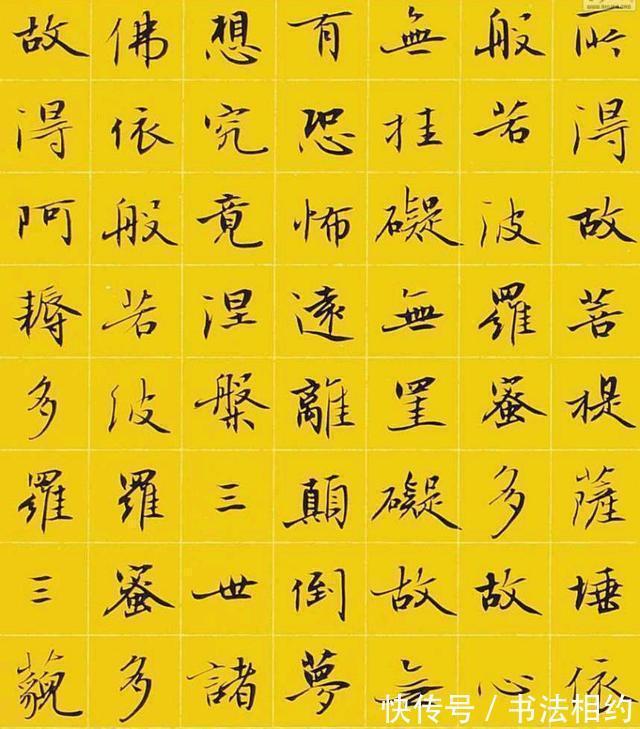 所得故菩提薩埵依
般若波羅蜜多故心
無挂礙無罣礙故無
有恐怖遠離顛倒夢
想究竟涅槃三世諸
佛依般若波羅蜜多
故得阿耨多羅三藐
快传号 / 书法相约